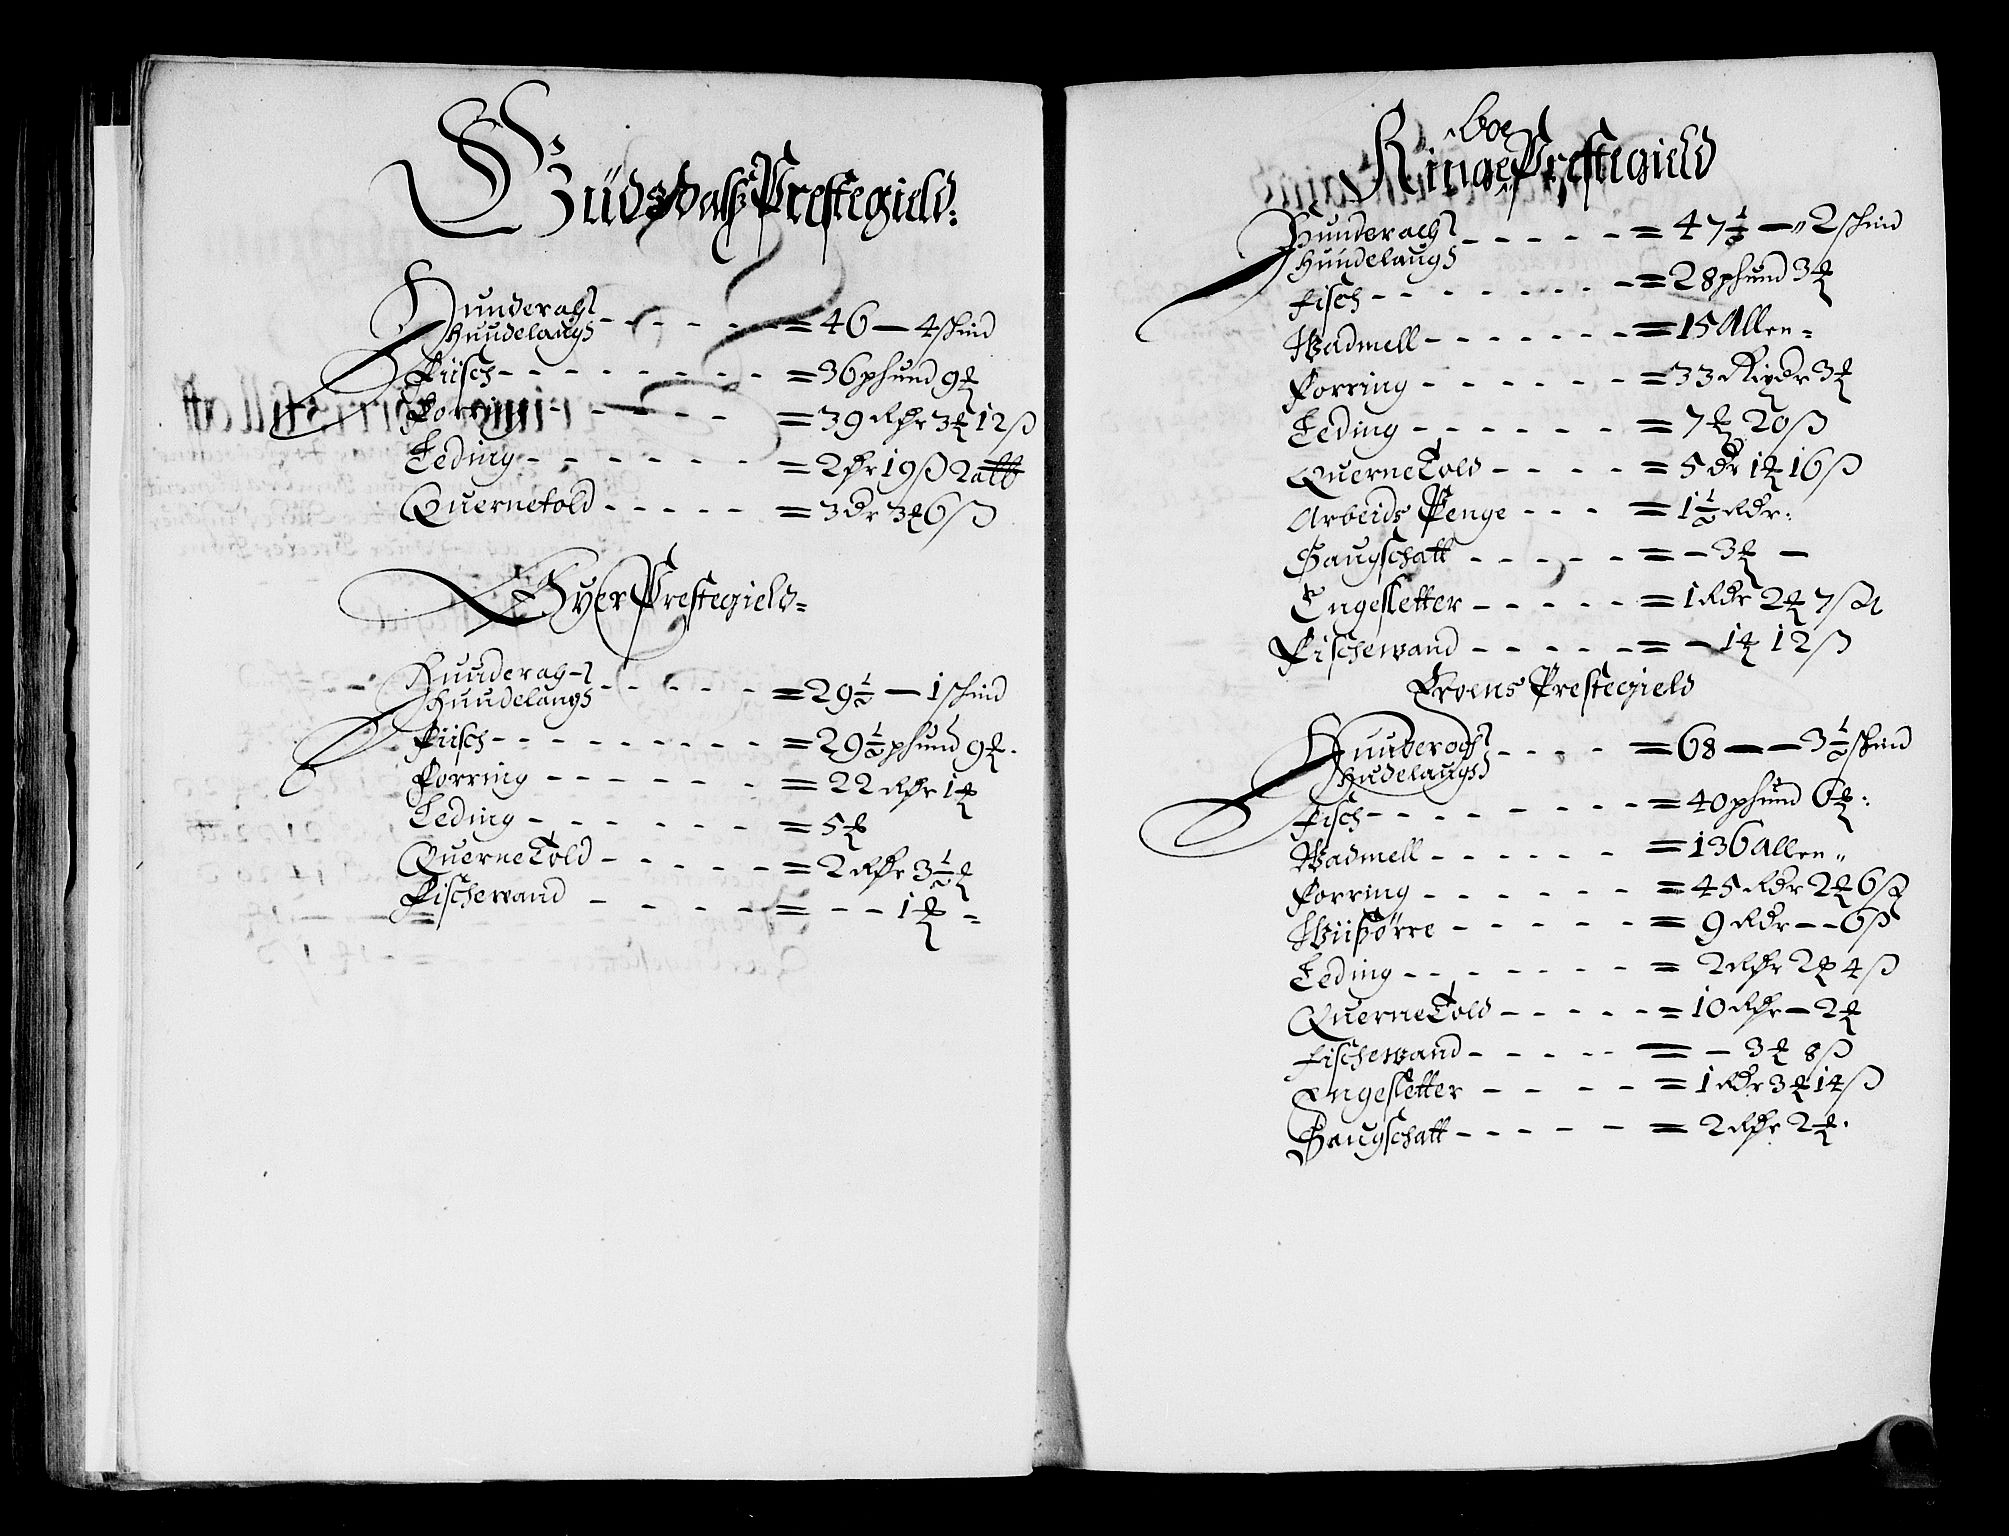 Gudsdalß Prestegield:
Hunderag
Hundelaugs - - - - - = 46 — 4 skind
Fiisch - - - - - - - - = 36 phund 9
Forring - - - - - - = 39 Rdr 3 12 ß
Leding - - - - - - = 2 dr 19 ß 2 alb
Quernetold - - - - - = 3 dr 3 6 ß
Øyer Prestegield =
Hunderag
Hundelaugs - - - - - = 29 ½ — 1 skind
Fiisch - - - - - - - - = 29 ½ phund 9
Forring - - - - - - = 22 Rdr 1
Leding - - - - - - = 5
QuerneTold - - - - - = 2 Rdr 3 ½
Fischewand - - - - - = - - 1 =
Ringeboe Prestegield
Hunderach
Hundelaugs - - - - - = 47 ½ — 2 skind
Fisch - - - - - - - = 28 phund 3
Wadmell - - - - - - = 15 Allen =
Forring - - - - - - = 33 Rixdr 3
Leding - - - - - - = 7 20 ß
QuerneTold - - - - = 5 dr 1 16 ß
Arbeids Penge - - - = 1 ½ Rdr:
Saugschatt - - - - - = - 3 —
Engesletter - - - - - = 1 Rdr 2 7 ß
Fischewand - - - - - = - 1 12 ß
Froens Prestegield
Hunderoch
Hudelaugs - - - - = 68 — — 3 ½ skind
Fisch - - - - - - - = 40 phund 6
Wadmell - - - - - - = 136 Allen
Forring - - - - - - = 45 Rdr 2 6 ß
Wiißørre - - - - - = 9 Rdr - - 6 ß
Leding - - - - - - = 2 Rdr 2 4 ß
QuerneTold - - - - - = 10 Rdr — 2
Fischewand - - - - - = - 3 8 ß
Engesletter - - - - = 1 Rdr 3 14 ß
Saugschatt - - - - - = 2 Rdr 2